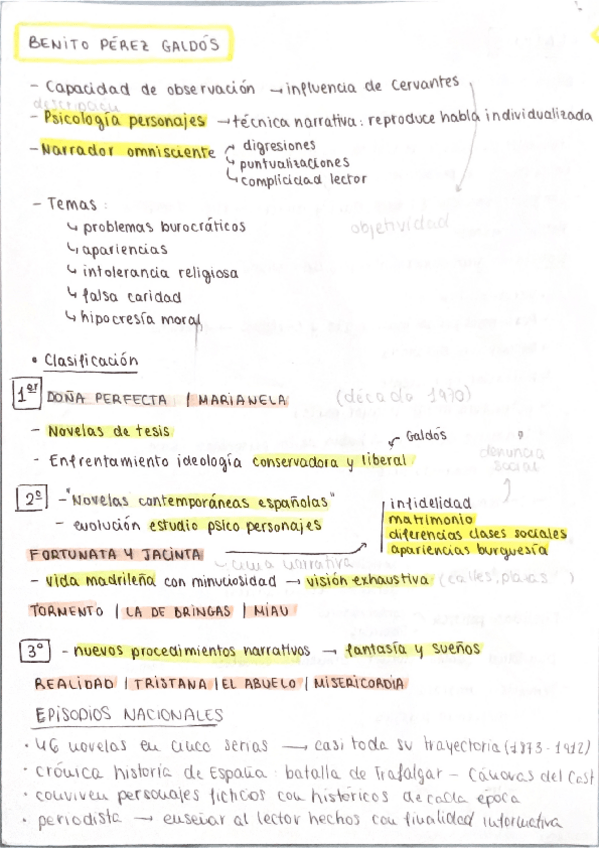 BENITO PÉREZ GALDÓS
- Capacidad de observación → influencia de Cervantes
descripción
- Psicología personajes → técnica narrativa: reproduce habla individualizada
- Narrador omnisciente
digresiones
puntualizaciones
complicidad lector
- Temas:
problemas burocráticos
objetividad
apariencias
intolerancia religiosa
falsa caridad
hipocresía moral
• Clasificación
1er DOÑA PERFECTA | MARIANELA (década 1970)
- Novelas de tesis
Galdós
- Enfrentamiento ideología conservadora y liberal
denuncia social
2º - "Novelas contemporáneas españolas"
- evolución estudio psico personajes
infidelidad
matrimonio
diferencias clases sociales
apariencias burguesía
FORTUNATA Y JACINTA
cima narrativa
- vida madrileña con minuciosidad → visión exhaustiva (calles, plazas )
TORMENTO | LA DE BRINGAS | MIAU
3º - nuevos procedimientos narrativos → fantasía y sueños
REALIDAD | TRISTANA | EL ABUELO | MISERICORDIA
EPISODIOS NACIONALES
· 46 novelas en cinco series → casi toda su trayectoria (1873-1912)
· crónica historia de España: batalla de Trafalgar - Cánovas del Cast
· conviven personajes ficticios con históricos de cada época
· periodista → enseñar al lector hechos con finalidad informativa